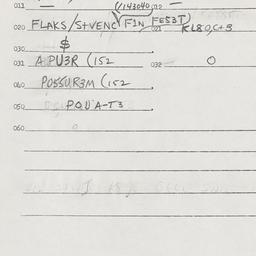 011 (/143040/12
020 FLAKS/StVENC (FIN FES3T)
021 KL80,C+3
030 $
031 APU3R (152 032 O
060 POSSUR3M (152
050 POUA-T3
060